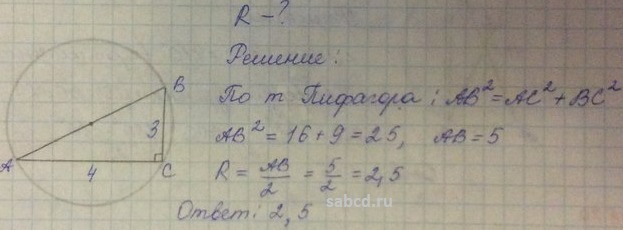 R - ?
Решение:
По т Пифагора: AB² = AC² + BC²
AB² = 16 + 9 = 25, AB = 5
R = AB/2 = 5/2 = 2,5
Ответ: 2,5
B
3
A
4
C
sabcd.ru